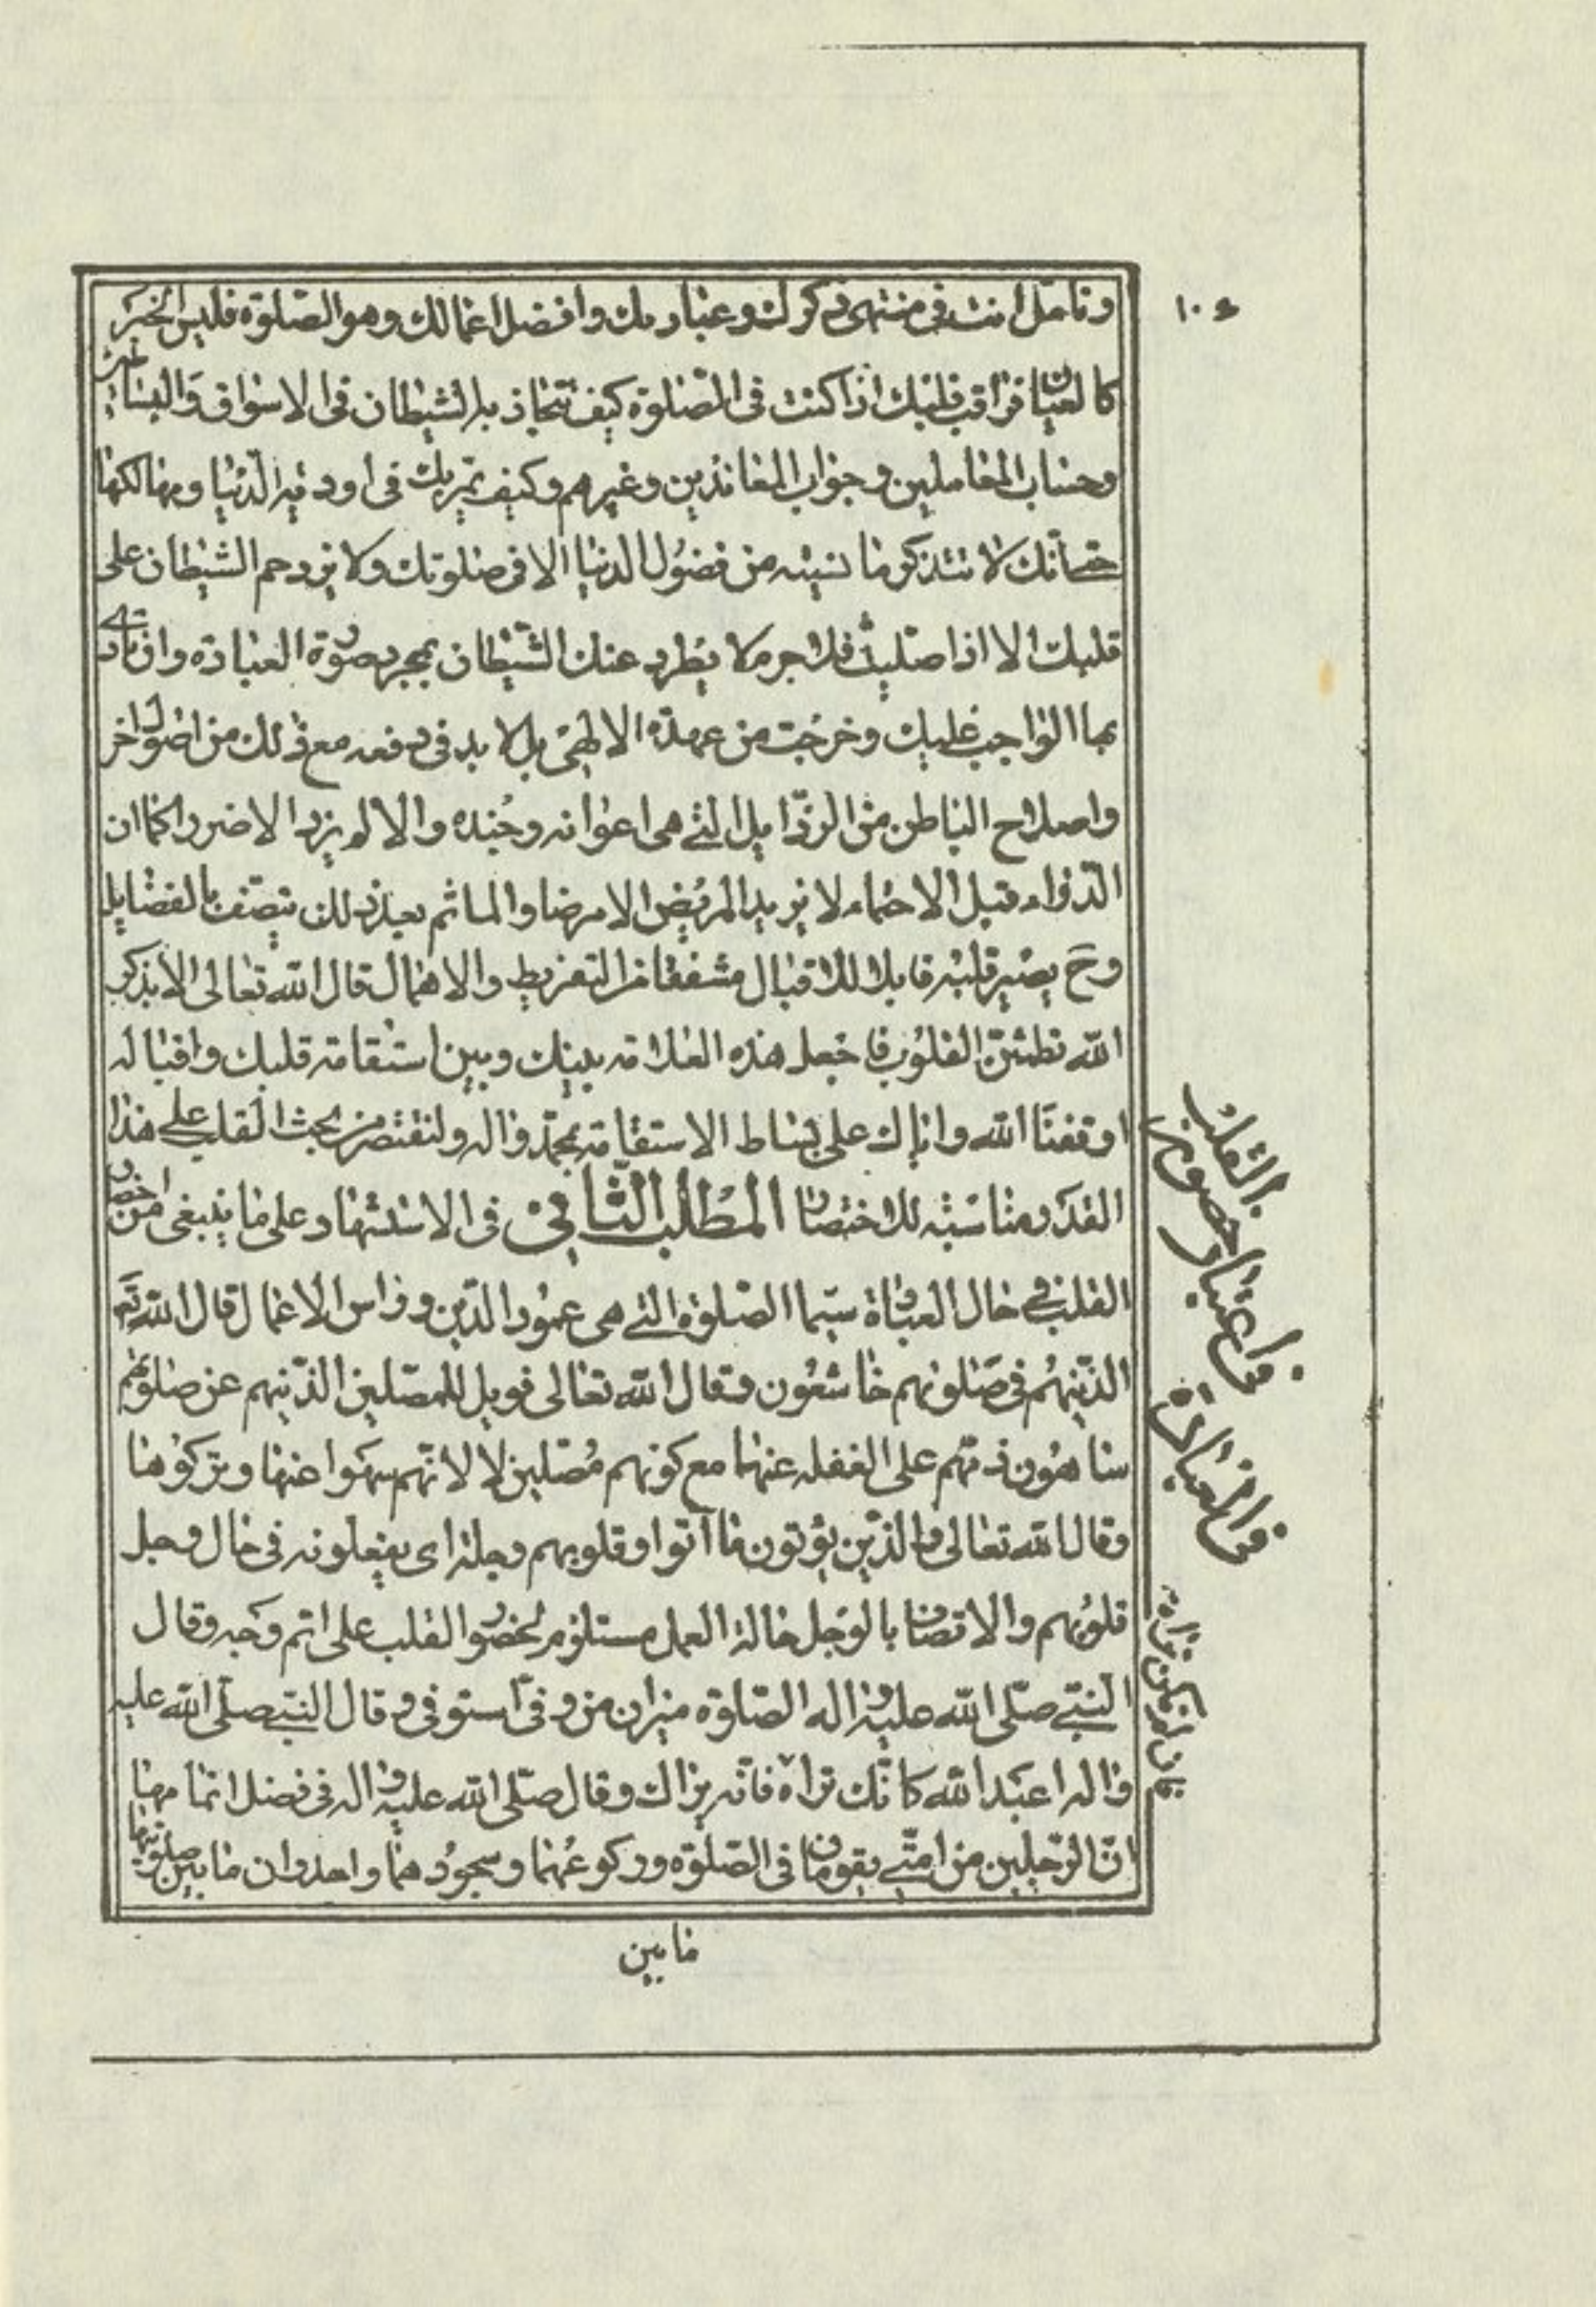 ١٠٤
وتامل انت في منتهى ذكرك وعبادتك وافضل اعمالك وهو الصلوة فليس الخبر
كالعيان فراقب قلبك اذا كنت في الصلوة كيف تتجاذبه الشيطان في الاسواق والبساتين
وحساب المعاملين وجواب المعاندين وغيرهم وكيف تمر بك في اودية الدنيا ومهالكها
حتى انك لا تتذكر ما نسيته من فضول الدنيا الا في صلوتك ولا يزدحم الشيطان على
قلبك الا اذا صليت فلا جرم لا يطرد عنك الشيطان بمجرد صورة العبادة وان تادى
بها الواجب عليك وخرجت من عهدة الالهي بل لا بد في دفعه مع ذلك من اصول اخر
واصلاح الباطن من الرذايل التي هي اعوانه وجنده والا لم يزد الا ضررا كما ان
الدواء قبل الاحتماء لا يزيد المريض الا مرضا والماثم بعد ذلك يتصف بالفضايل
وح يصير قلبه قابلا للاقبال مشفقا من التفريط والاهمال قال الله تعالى الا بذكر
الله تطمئن القلوب فاجعل هذه العلامة بينك وبين استقامة قلبك واقباله
اوقفنا الله واياك على بساط الاستقامة بمحمد واله ولنقتصر من بحث القلب على هذا
القدر مناسبة للاختصار المطلب الثاني في الاستشهاد على ما ينبغي من احضار
القلب في حال العبادة سيما الصلوة التي هي عمود الدين وراس الاعمال قال الله تع
الذينهم في صلوتهم خاشعون وقال الله تعالى فويل للمصلين الذينهم عن صلوتهم
ساهون ذمهم على الغفله عنها مع كونهم مصلين لا لانهم سهوا عنها وتركوها
وقال الله تعالى والذين يؤتون ما آتوا وقلوبهم وجلة اى يفعلونه في حال وجل
قلوبهم والاتصاف بالوجل حالة العمل مستلزم لحضور القلب على اتم وجه وقال
النبي صلى الله عليه واله الصلوة ميزان من وفى استوفى وقال النبي صلى الله عليه
واله اعبد الله كانك تراه فانه يراك وقال صلى الله عليه واله في فضل اتمامها
ان الرجلين من امتي يقومان في الصلوة وركوعهما وسجودهما واحد وان ما بين صلوتيهما
القلب
حضور
ما بين